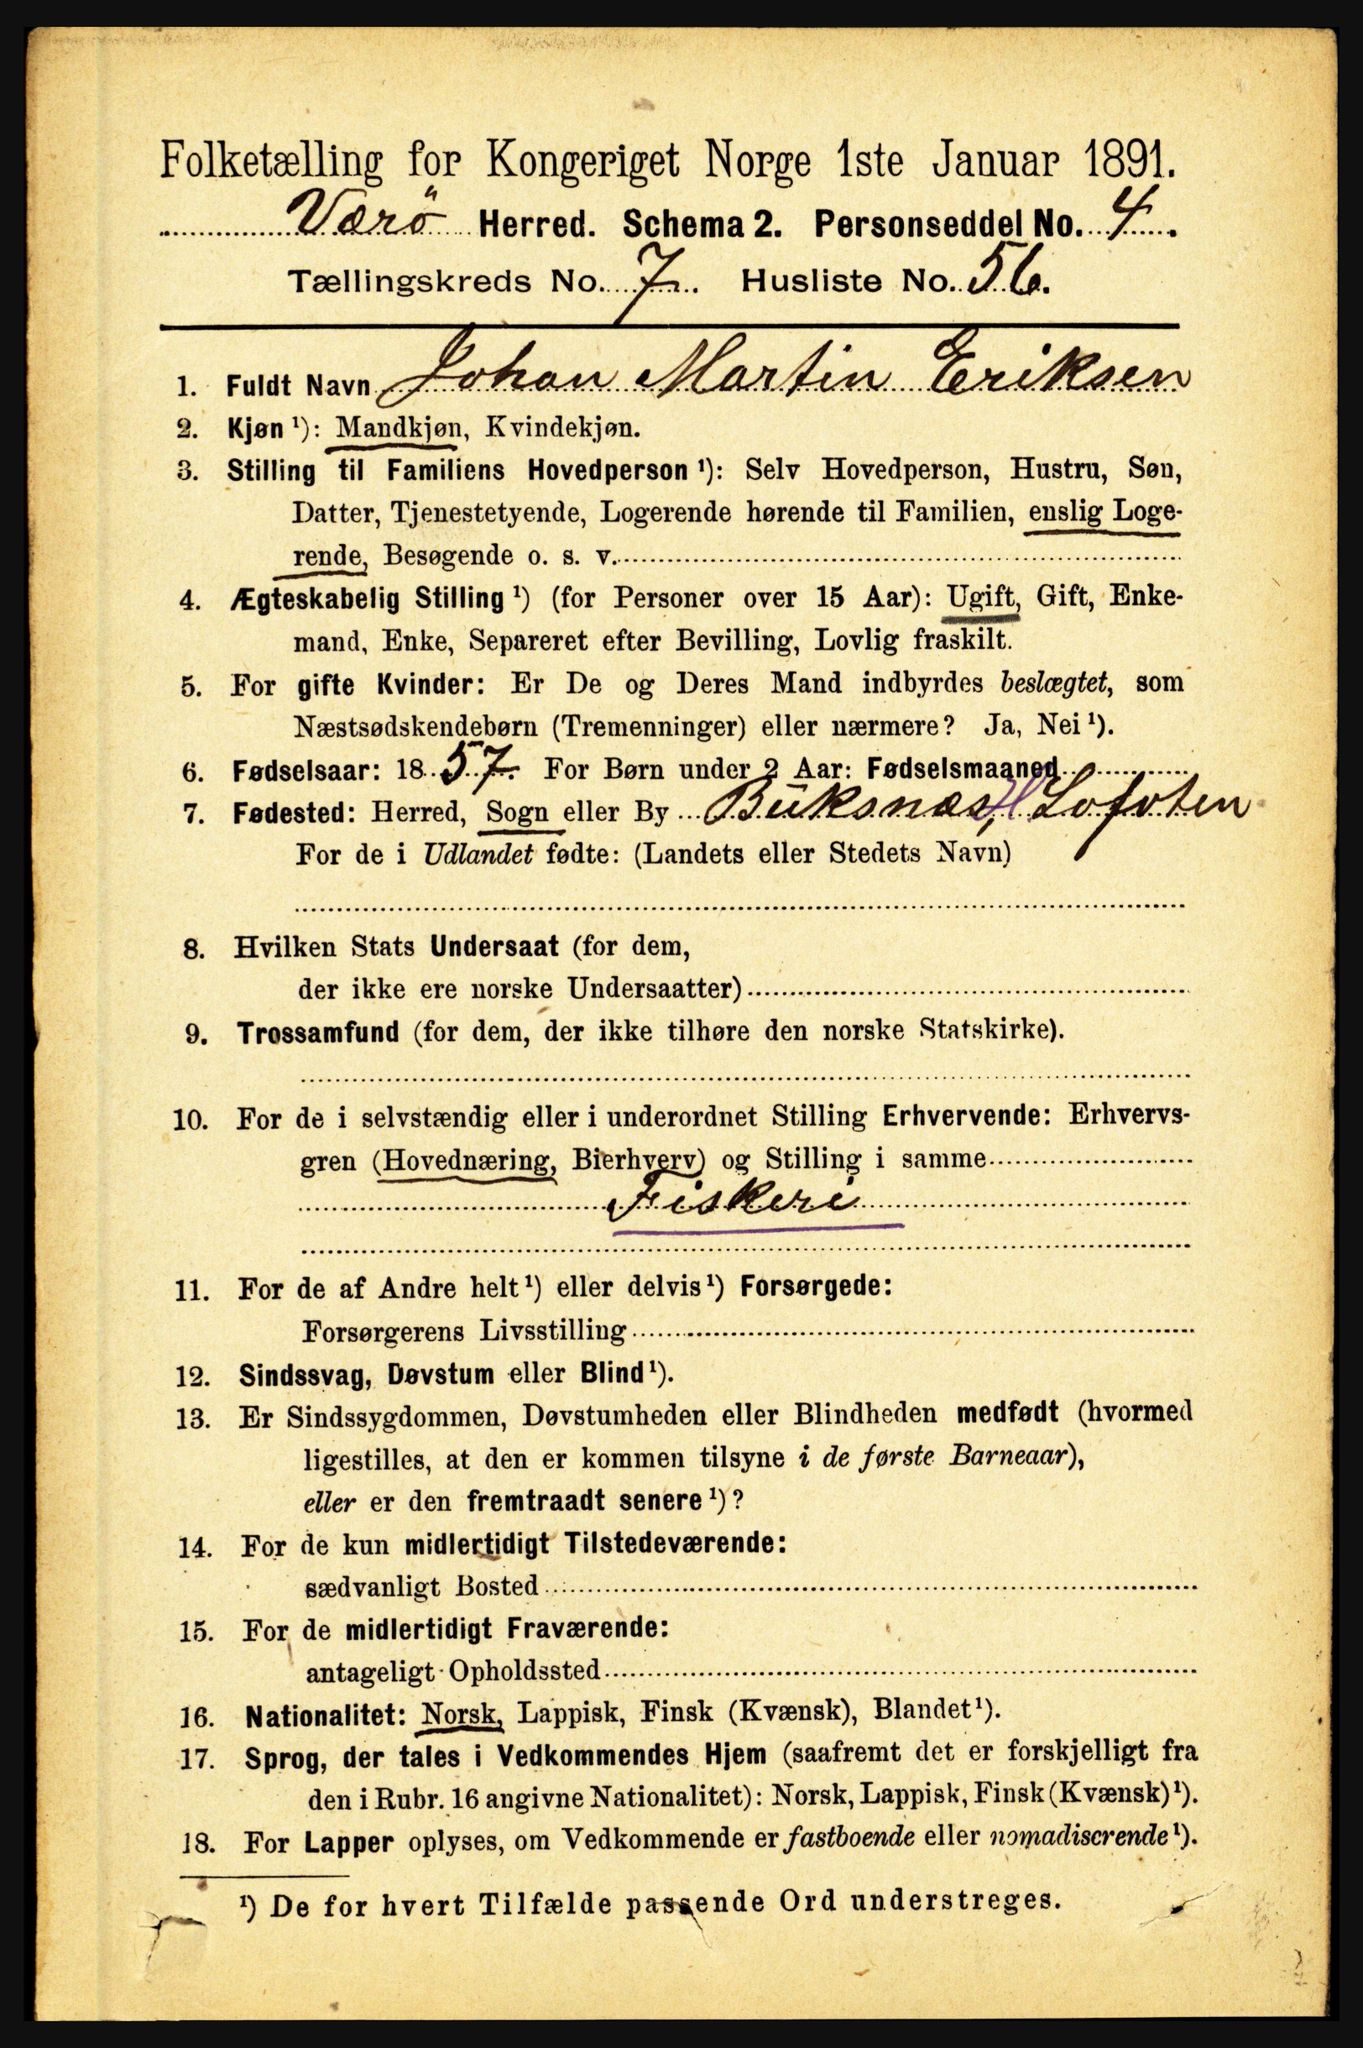 Folketælling for Kongeriget Norge 1ste Januar 1891.
Værö Herred. Schema 2. Personseddel No. 4.
Tællingskreds No. 7. Husliste No. 56.
1. Fuldt Navn Johan Martin Eriksen
2. Kjøn ¹): Mandkjøn, Kvindekjøn.
3. Stilling til Familiens Hovedperson ¹): Selv Hovedperson, Hustru, Søn,
Datter, Tjenestetyende, Logerende hørende til Familien, enslig Loge-
rende, Besøgende o. s. v.
4. Ægteskabelig Stilling ¹) (for Personer over 15 Aar): Ugift, Gift, Enke-
mand, Enke, Separeret efter Bevilling, Lovlig fraskilt.
5. For gifte Kvinder: Er De og Deres Mand indbyrdes beslægtet, som
Næstsødskendebørn (Tremenninger) eller nærmere? Ja, Nei ¹).
6. Fødselsaar: 1857. For Børn under 2 Aar: Fødselsmaaned
7. Fødested: Herred, Sogn eller By Buksnæs, H Lofoten
For de i Udlandet fødte: (Landets eller Stedets Navn)
8. Hvilken Stats Undersaat (for dem,
der ikke ere norske Undersaatter)
9. Trossamfund (for dem, der ikke tilhøre den norske Statskirke).
10. For de i selvstændig eller i underordnet Stilling Erhvervende: Erhvervs-
gren (Hovednæring, Bierhverv) og Stilling i samme
Fiskeri
11. For de af Andre helt ¹) eller delvis ¹) Forsørgede:
Forsørgerens Livsstilling
12. Sindssvag, Døvstum eller Blind ¹).
13. Er Sindssygdommen, Døvstumheden eller Blindheden medfødt (hvormed
ligestilles, at den er kommen tilsyne i de første Barneaar),
eller er den fremtraadt senere ¹)?
14. For de kun midlertidigt Tilstedeværende:
sædvanligt Bosted
15. For de midlertidigt Fraværende:
antageligt Opholdssted
16. Nationalitet: Norsk, Lappisk, Finsk (Kvænsk), Blandet ¹).
17. Sprog, der tales i Vedkommendes Hjem (saafremt det er forskjelligt fra
den i Rubr. 16 angivne Nationalitet): Norsk, Lappisk, Finsk (Kvænsk) ¹).
18. For Lapper oplyses, om Vedkommende er fastboende eller nomadiserende ¹).
¹) De for hvert Tilfælde passende Ord understreges.